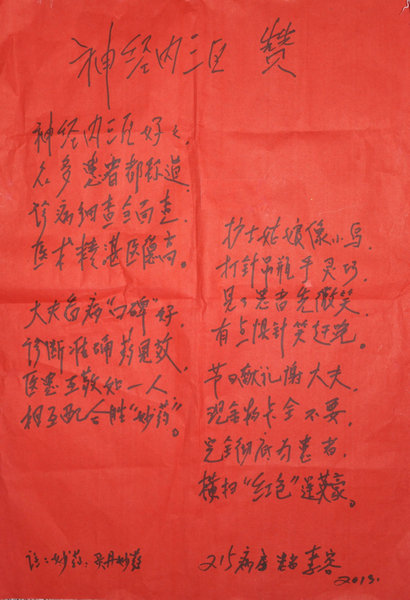 神经内三区 赞
神经内三区好，
众多患者都称道，
诊病细查全面查，
医术精湛医德高。
大夫看病“口碑”好，
诊断准确药见效，
医患互敬如一人
相互配合胜“妙药”。
注：妙药：灵丹妙药
护士姑娘像小鸟，
打针吊瓶手灵巧，
见了患者先微笑，
有点惧针笑赶跑。
节日献礼谢大夫，
现金购卡全不要，
完全彻底为患者，
横扫“红包”逞英豪。
215病房 患者 李容
2013.